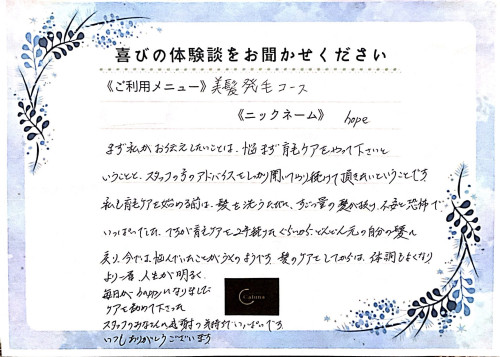 喜びの体験談をお聞かせください
《ご利用メニュー》美髪発毛コース
《ニックネーム》 hope
まず私がお伝えしたいことは、悩まず育毛ケアをやって下さいと
いうことと、スタッフの方のアドバイスをしっかり聞いてやり続けて頂きたいということです
私も育毛ケアを始める前は、髪を洗うたびに、すごい量の髪が抜け、不安と恐怖で
いっぱいでした。ですが育毛ケアを2年続けたぐらいから、どんどん元の自分の髪に
戻り、今では悩んでいたことがうそのようです。髪のケアをしてからは、体調もよくなり
より一層人生が明るく、
毎日がhappyになりました
ケアを勧めて下さった
スタッフのみなさんに感謝の気持ちでいっぱいです
いつもありがとうございます
Calinna